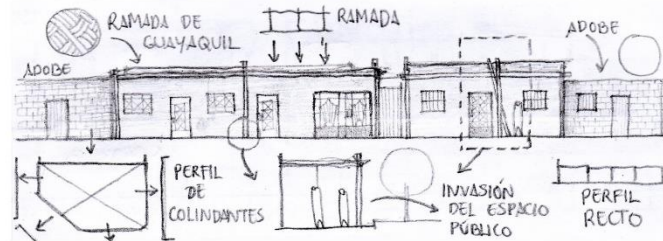 RAMADA DE
GUAYAQUIL
RAMADA
ADOBE
ADOBE
PERFIL
DE
COLINDANTES
INVASIÓN
DEL ESPACIO
PÚBLICO
PERFIL
RECTO